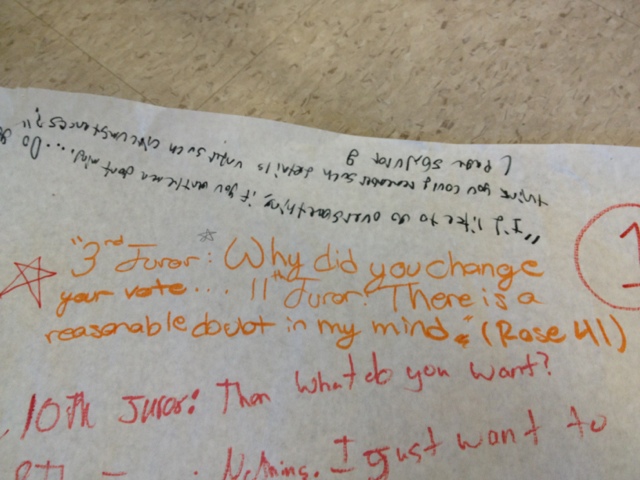 "I'd like to go over something, if you gentlemen dont mind.... Do you
think you could remember such details under such circumstances?"
(Rose 58) Juror 8
"3rd Juror: Why did you change
your vote... 11th Juror: There is a
reasonable doubt in my mind." (Rose 41)
10th Juror: Then What do you want?
Nothing. I just want to
1